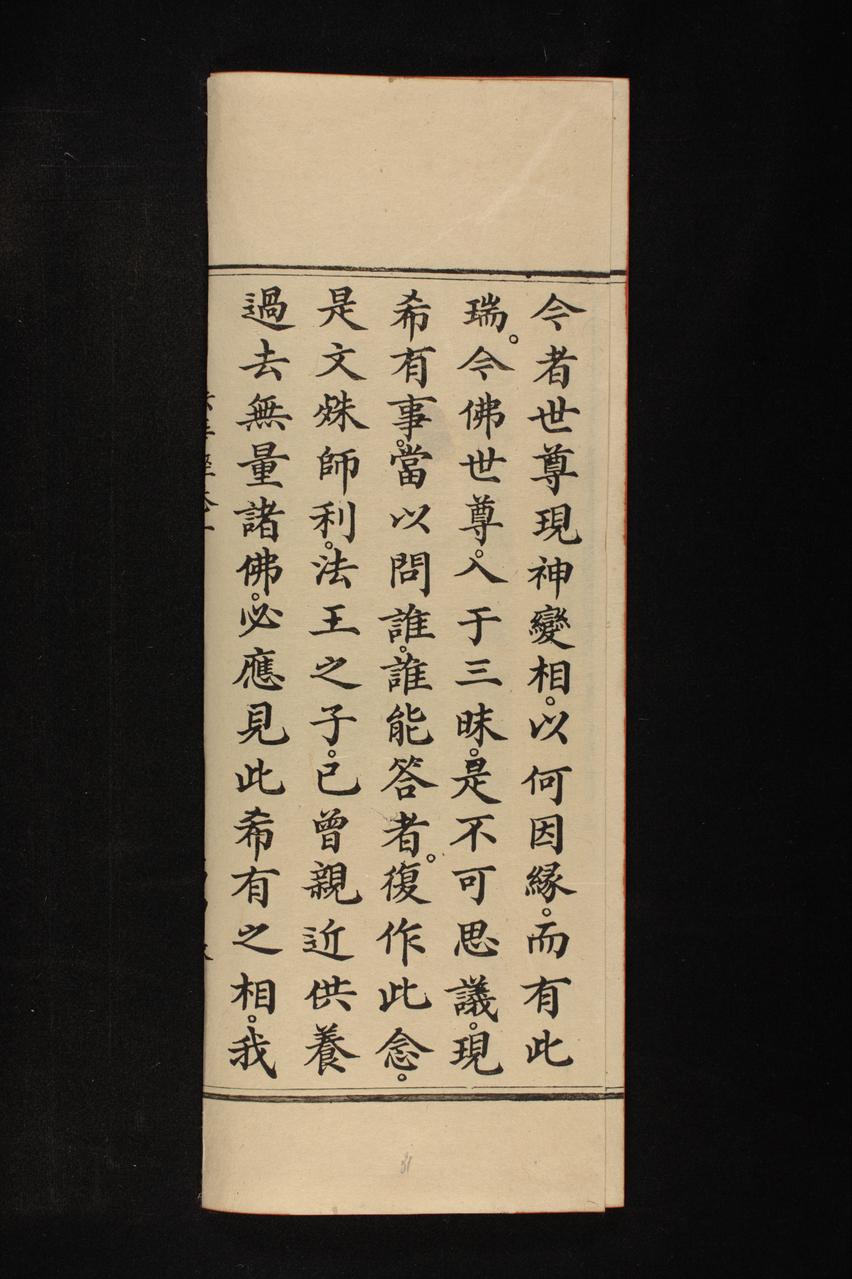 今者世尊現神變相。以何因緣。而有此
瑞。今佛世尊。入于三昧。是不可思議。現
希有事。當以問誰。誰能答者。復作此念。
是文殊師利。法王之子。已曾親近供養
過去無量諸佛。必應見此希有之相。我